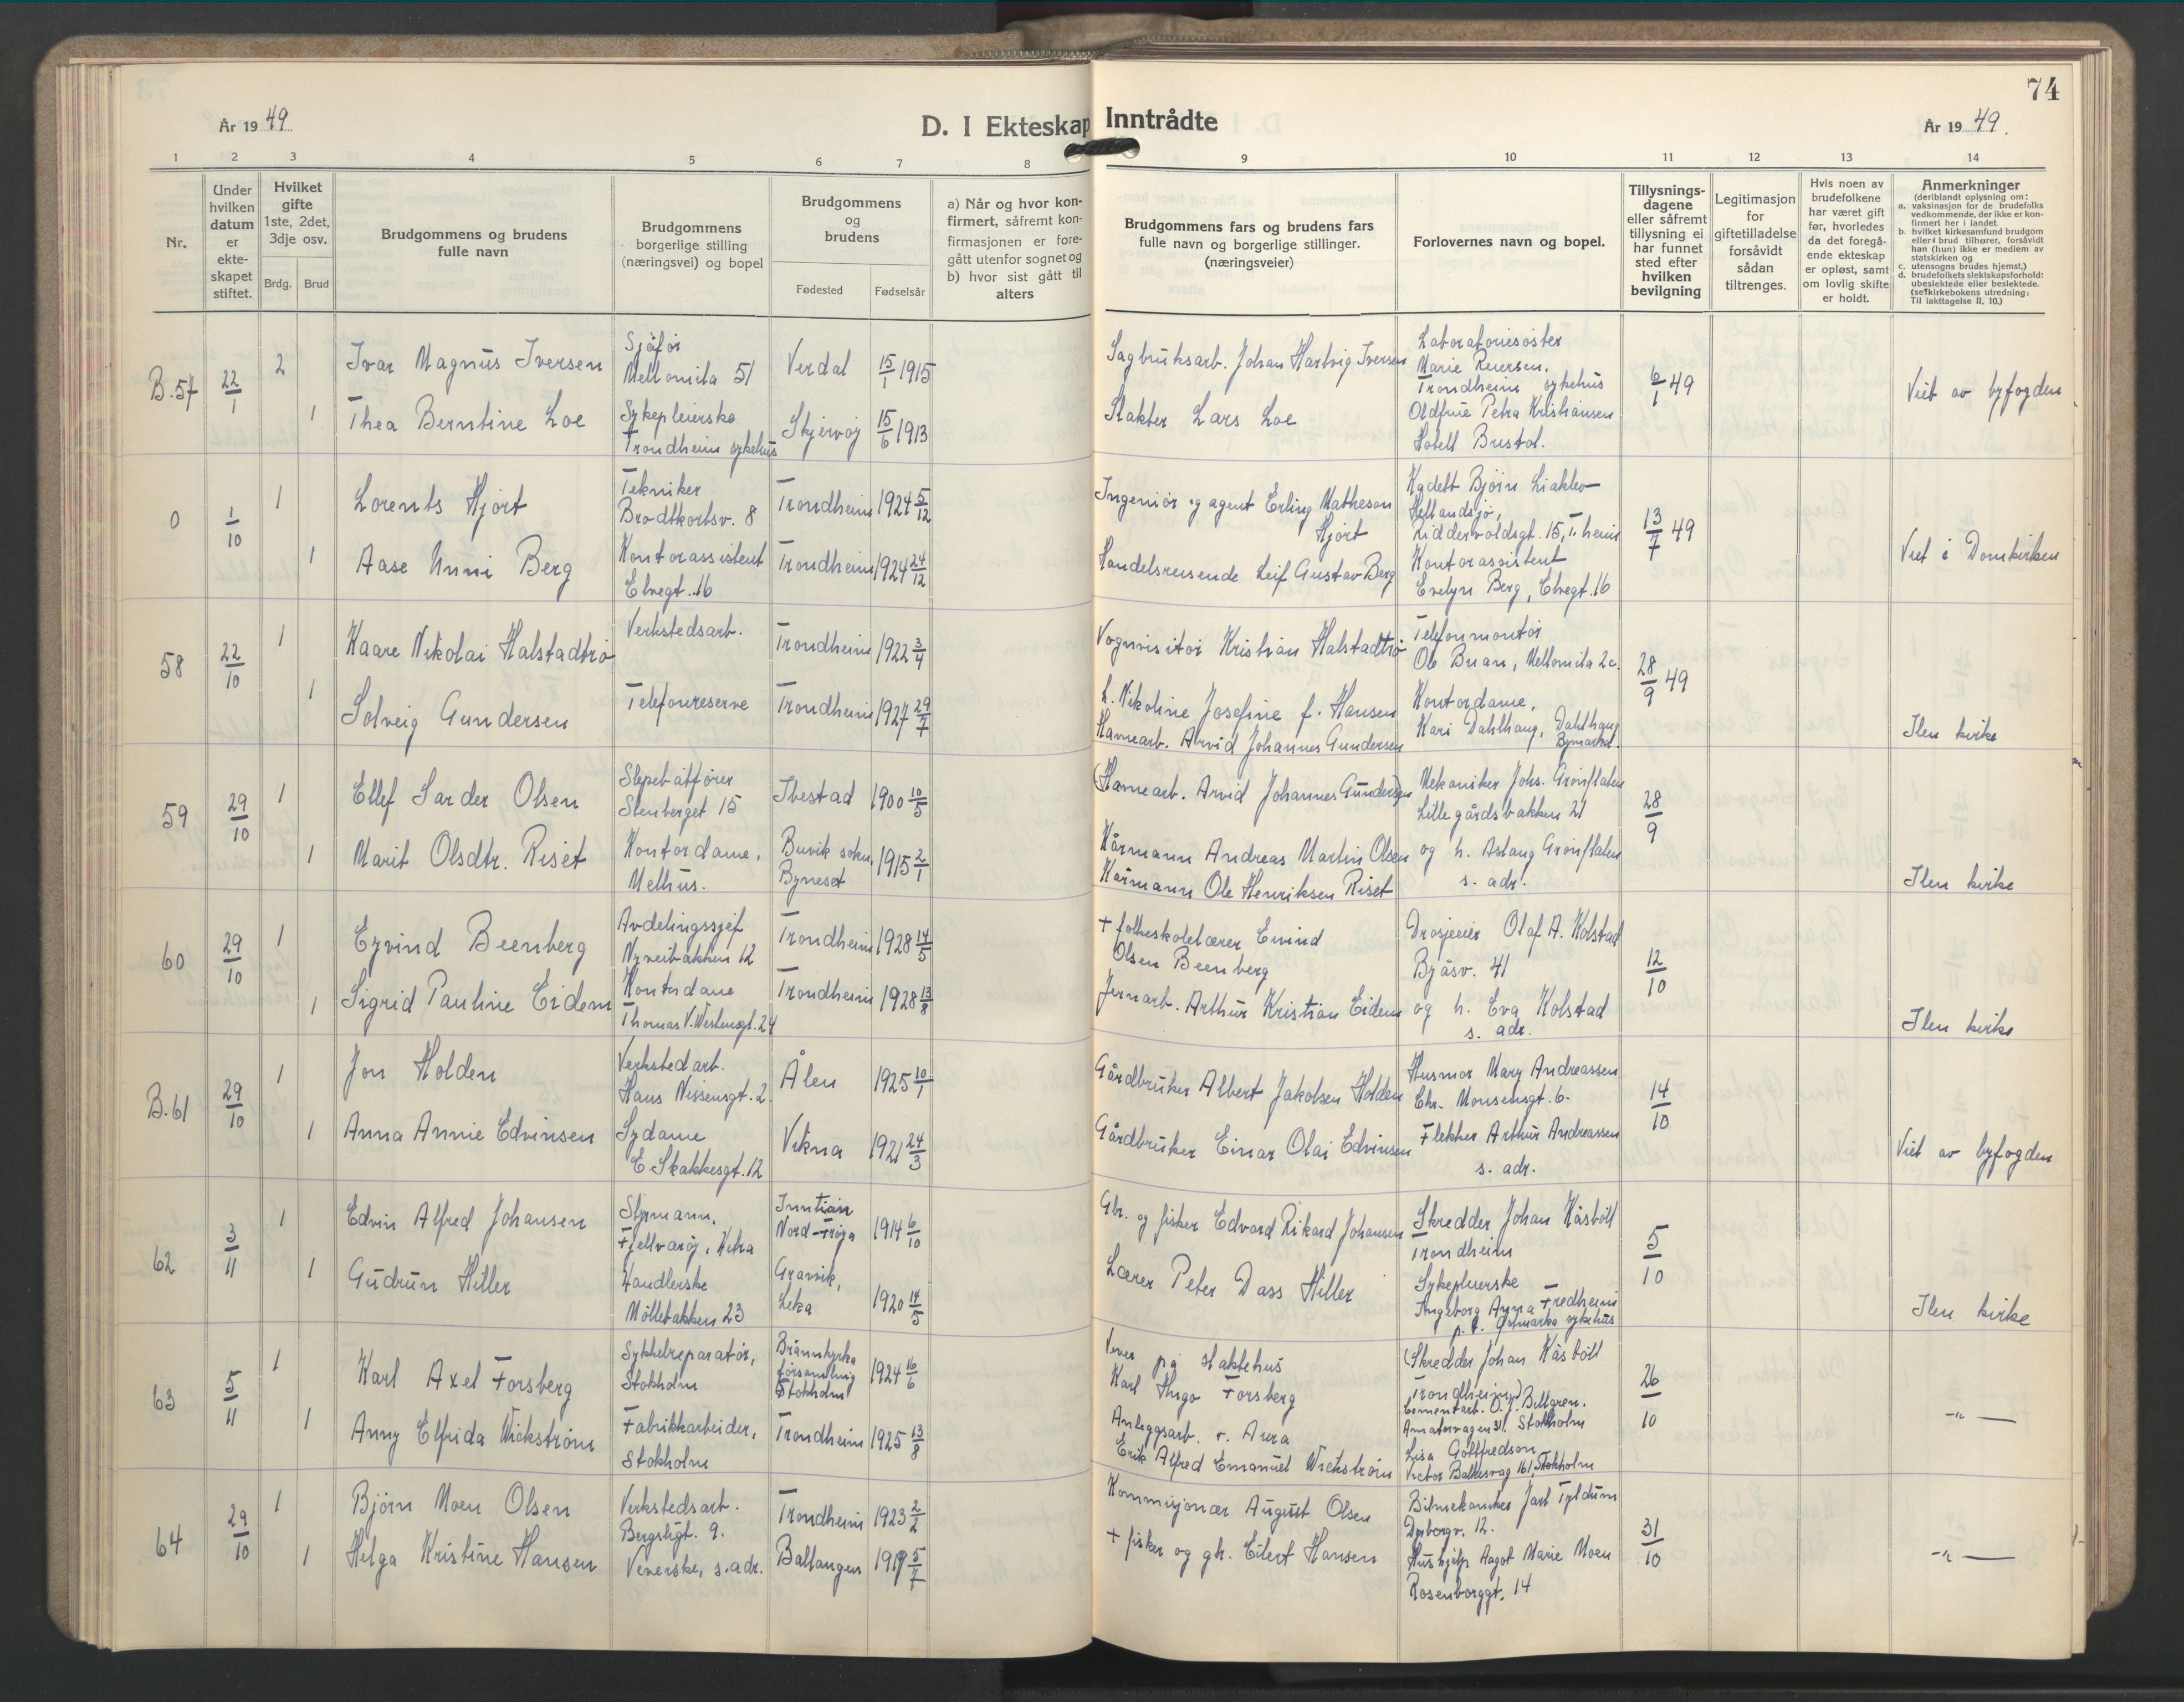 74
År 1949
D. I Ekteskap Inntrådte
År 1949.
1 2 3 4 5 6 7 8 9 10 11 12 13 14
Nr.
Under hvilken datum er ekteskapet stiftet.
Hvilket gifte 1ste, 2det, 3dje osv.
Brdg. Brud
Brudgommens og brudens fulle navn
Brudgommens borgerlige stilling (næringsvei) og bopel
Brudgommens og brudens
Fødested Fødselsår
a) Når og hvor konfirmert, såfremt konfirmasjonen er foregått utenfor sognet og b) hvor sist gått til alters
Brudgommens fars og brudens fars fulle navn og borgerlige stillinger. (næringsveier)
Forlovernes navn og bopel.
Tillysningsdagene eller såfremt tillysning ei har funnet sted efter hvilken bevilgning
Legitimasjon for giftetilladelse forsåvidt sådan tiltrenges.
Hvis noen av brudefolkene har været gift før, hvorledes da det foregående ekteskap er opløst, samt om lovlig skifte er holdt.
Anmerkninger
(deriblandt oplysning om:
a. vaksinasjon for de brudefolks vedkommende, der ikke er konfirmert her i landet
b. hvilket kirkesamfund brudgom eller brud tilhører, forsåvidt han (hun) ikke er medlem av statskirken og
c. utensogns brudes hjemst.)
d. brudefolkets slektskapsforhold: ubeslektede eller beslektede.
(se kirkebokens utredning: Til iakttagelse II, 10.)
B.57 22/1 2 Ivar Magnus Iversen Sjåfør Mellomila 51 Verdal 15/1 1915
1 Thea Berntine Loe Sykepleierske Trondheim sykehus Skjervøy 15/6 1913
Sagbruksarb. Johan Hartvig Iversen
Slakter Lars Loe
Laboratoriesøster
Marie Reiersen.
Trondheim sykehus
Oldfrue Petra Kristiansen
Hotell Bristol.
6/1 49
Viet av byfogden
0 1/10 1 Lorents Hjort Tekniker Brodtkorbsv. 8 Trondheim 1924 5/12
1 Aase Unni Berg Kontorassistent Elvegt. 16 Trondheim 1924 24/12
Ingeniør og agent Erling Matheson Hjort
Handelsreisende Leif Gustav Berg
Kadett Bjørn Liaklev
Hellandsjø,
Riddervoldsgt. 15, T.heim
Kontorassistent
Evelyn Berg, Elvegt. 16
13/7 49
Viet i Domkirken
58 22/10 1 Kaare Nikolai Halstadtrø Verkstedsarb. Trondheim 1922 3/4
1 Solveig Gundersen Telefonreserve Trondheim 1927 29/7
Vognvisitør Kristian Halstadtrø
h. Nikoline Josefine f. Hansen
Havnearb. Arvid Johannes Gundersen
Telefonmontør
Ole Buan, Mellomila 2c.
Kontordame,
Kari Dahlhaug, Dahlhaug
Bymarka.
28/9 49
Ilen kirke
59 29/10 1 Ellef Sarder Olsen Slepebåtfører Stenberget 15 Ibestad 1900 10/5
1 Marit Olsdtr. Riset Kontordame, Melhus. Buvik sokn, Byneset 1915 2/1
(Havnearb. Arvid Johannes Gundersen)
Kårmann Andreas Martin Olsen
Kårmann Ole Henriksen Riset
Mekaniker Johs. Grønflaten
Lillegårdsbakken 21
og h. Aslaug Grønflaten
s. adr.
28/9
Ilen kirke
60 29/10 1 Eyvind Beenberg Avdelingssjef Nyveibakken 12 Trondheim 1928 14/5
1 Sigrid Pauline Eidem Kontordame Thomas V. Westensgt. 24 Trondheim 1928 13/8
+ folkeskolelærer Eivind
Olsen Beenberg
Jernarb. Arthur Kristian Eidem
Drosjeeier Olaf A. Kolstad
Byåsv. 41
og h. Eva Kolstad
s. adr.
12/10
Ilen kirke
B.61 29/10 1 Jon Holden Verkstedarb. Hans Nissensgt. 2. Ålen 1925 10/1
1 Anna Annie Edvinsen Sydame E. Skakkesgt. 12 Vikna 1921 24/3
Gårdbruker Albert Jakobsen Holden
Gårdbruker Einar Olai Edvinsen
Husmor Mary Andreassen
Chr. Monsensgt. 6.
Flekker Arthur Andreassen
s. adr.
14/10
Viet av byfogden
62 3/11 1 Edvin Alfred Johansen Styrmann, Fjellværøy, Kitra Inntian Nord-Frøya 1914 6/10
1 Gudrun Hiller Handlerske Møllebakken 23 Gravvik, Leka 1920 14/5
Gbr. og fisker Edvard Rikard Johansen
Lærer Peter Dass Hiller
Skredder Johan Kåsbøll
Trondheim
Sykepleierske
Ingeborg Anna Fredheim
p.t. Østmarka sykehus
5/10
Ilen kirke
63 5/11 1 Karl Axel Forsberg Sykkelreparatør, Stokholm Brännkyrka församling Stokholm 1924 16/6
1 Anny Elfrida Wickstrøm Fabrikkarbeider, Stokholm Trondheim 1925 13/8
på slaktehus
Karl Hugo Forsberg
Anleggsarb. v. Aura
Erik Alfred Emanuel Wickstrøm
(Skredder Johan Kåsbøll
Trondheim)
Cementarb. O. J. Billgren.
Amatørvagen 31. Stokholm
Lisa Gottfredson
Victor Balksvag 161, Stokholm
26/10
-"-
64 29/10 1 Bjørn Moen Olsen Verkstedsarb. Bergsligt. 9. Trondheim 1923 2/2
1 Helga Kristine Hansen Veverske, s.adr. Ballangen 1919 5/7
Kommisjonær August Olsen
+ fisker og gbr. Eilert Hansen
Bilmekaniker Jarl Tyldum
Dyborgv. 12.
Hushjelp Aagot Marie Moen
Rosenborggt. 14
31/10
-"-